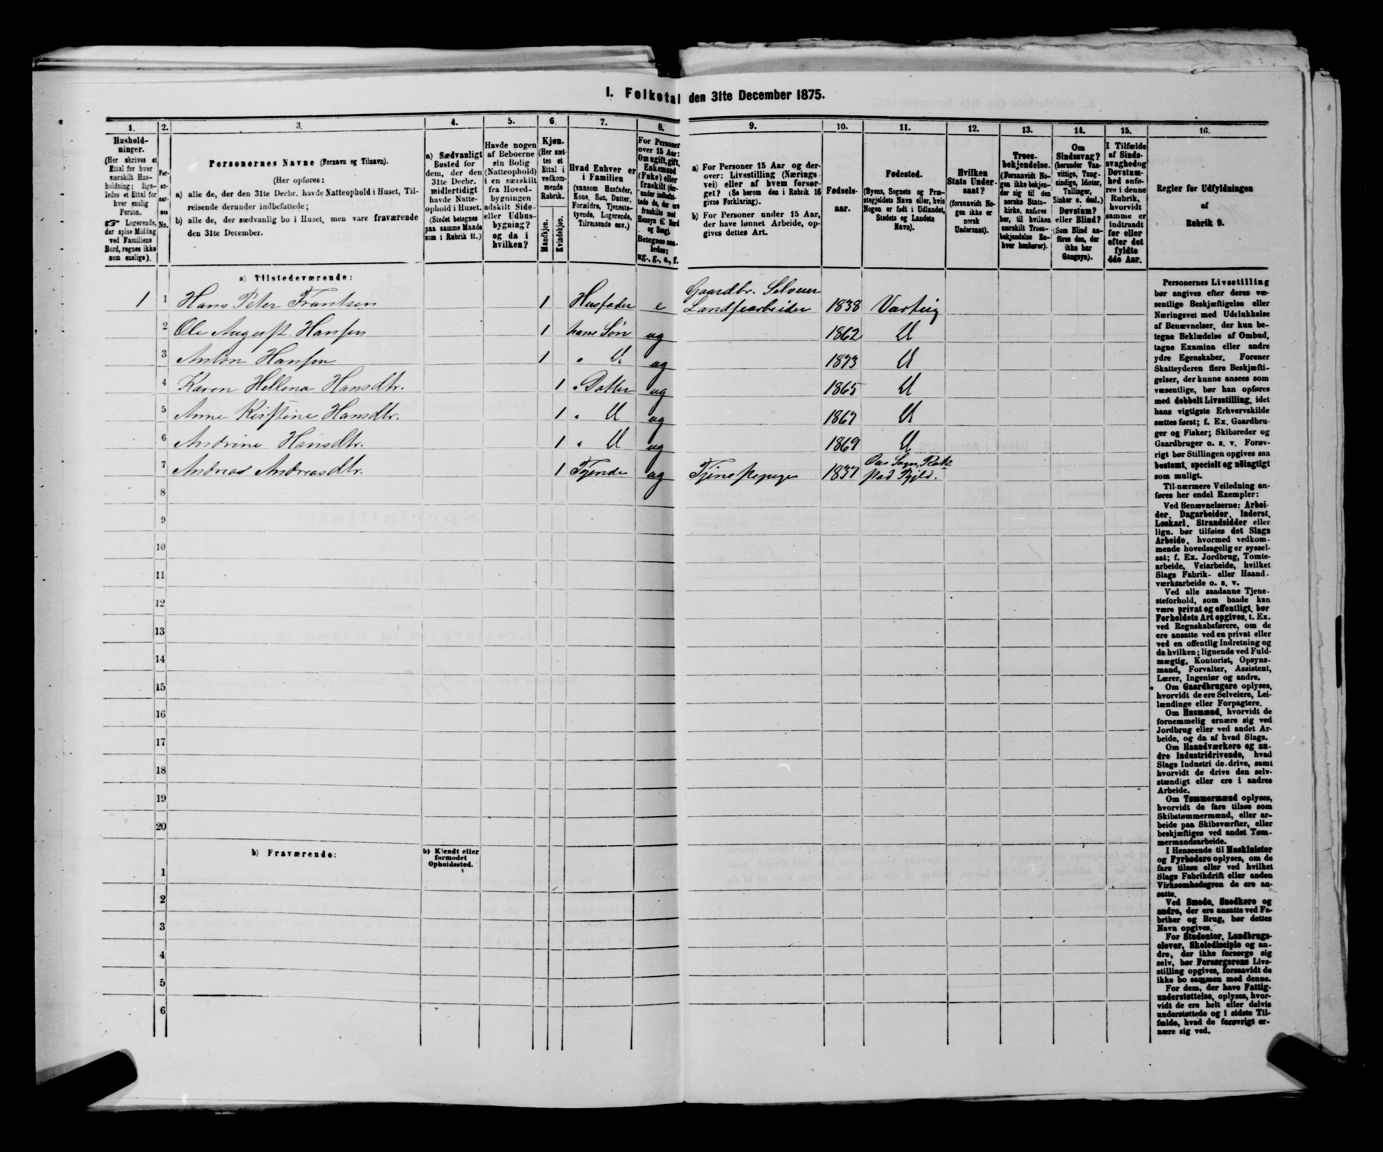 I. Folketal den 31te December 1875.
1. 2. 3. 4. 5. 6. 7. 8. 9. 10. 11. 12. 13. 14. 15. 16.
Hushold-
ninger.
(Her skrives et
Ettal for hver
særskilt Hus-
holdning; lige-
ledes et Ettal for
hver enslig
Person.
Logerende,
der spise Middag
ved Familiens
Bord, regnes ikke
som enslige).
Personernes Navne (Fornavn og Tilnavn).
(Her opføres:
a) alle de, der den 31te Decbr. havde Natteophold i Huset, Til-
reisende derunder indbefattede;
b) alle de, der sædvanlig bo i Huset, men vare fraværende
den 31te December.
a) Sædvanligt
Bosted for
dem, der den
31te Decbr.
midlertidigt
havde Natte-
ophold i Huset.
(Stedet betegnes
paa samme Maade
som i Rubrik 11.)
Havde nogen
af Beboerne
sin Bolig
(Natteophold)
i en særskilt
fra Hoved-
bygningen
adskilt Side-
eller Udhus-
bygning?
og da i
hvilken?
Kjøn.
(Her sæt-
tes et
Ettal i
vedkom-
mende
Rubrik.
Mandkjøn.
Kvindekjøn.
Hvad Enhver er
i Familien
(saasom Husfader,
Kone, Søn, Datter,
Forældre, Tjeneste-
tyende, Logerende,
Tilreisende osv.)
For Personer
over 15 Aar:
Om ugift, gift,
Enkemand
(Enke) eller
fraskilt
ug., g., e., f.
a) For Personer 15 Aar og der-
over: Livsstilling (Nærings-
vei) eller af hvem forsør-
get? (Se herom den i Rubrik 16
givne Forklaring).
b) For Personer under 15 Aar,
der have lønnet Arbeide, op-
gives dettes Art.
Fødsels-
aar.
Fødested.
(Byens, Sognets og Præ-
stegjeldets Navn eller, hvis
Nogen er født i Udlandet,
Stedets og Landets
Navn).
Hvilken
Stats Under-
saat?
(forsaavidt No-
gen ikke er
norsk
Undersaat).
Troes-
bekjendelse.
(Forsaavidt No-
gen ikke bekjen-
der sig til den
norske Stats-
kirke, anføres
her, til hvilken
særskilt Troes-
bekjendelse En-
hver henhører).
Om
Sindssvag?
(herunder Van-
vittige, Tung-
sindige, Idioter,
Tullinger,
Sinker o. desl.)
Døvstum?
eller Blind?
(Som Blind an-
føres den, der
ikke har
Gangsyn).
I Tilfælde
af Sinds-
svaghed og
Døvstum-
hed anfø-
res i denne
Rubrik,
hvorvidt
samme er
indtraadt
før eller
efter det
fyldte
4de Aar.
Regler for Udfyldningen
af
Rubrik 9.
a) Tilstedeværende:
1 1 Hans Peter Frantsen 1 Husfader e Gaardbr. Selveier Landsearbeider 1838 Varteig
2 Ole August Hansen 1 hans Søn ug 1862 U
3 Anton Hansen 1 " U ug 1873 U
4 Karen Hellena Hansdtr. 1 " Datter ug 1865 U
5 Anne Kristine Hansdtr. 1 " U ug 1867 U
6 Andrine Hansdtr. 1 " U ug 1869 U
7 Andrea Andreasdtr. 1 Tjende ug Tjenstepige 1837
8
9
10
11
12
13
14
15
16
17
18
19
20
b) Fraværende:
b) Kjendt eller
formodet
Opholdssted.
1
2
3
4
5
6
Personernes Livsstilling
bør angives efter deres væ-
sentlige Beskjæftigelse eller
Næringsvei med Udelukkelse
af Benævnelser, der kun be-
tegne Beklædelse af Ombud,
tagne Examina eller andre
ydre Egenskaber. Forener
Skatteyderen flere Beskjæfti-
gelser, der kunne ansees som
væsentlige, bør han opføres
med dobbelt Livsstilling, idet
hans vigtigste Erhvervskilde
sættes først; f. Ex. Gaardbru-
ger og Fisker; Skibsreder og
Gaardbruger o. s. v. Forøv-
rigt bør Stillingen opgives saa
bestemt, specielt og nøiagtigt
som muligt.
Til nærmere Veiledning an-
føres her endel Exempler:
Ved Benævnelserne: Arbei-
der, Dagarbeider, Inderst,
Løskarl, Strandsidder eller
lign. bør tilføies det Slags
Arbeide, hvormed vedkom-
mende hovedsagelig er syssel-
sat; f. Ex. Jordbrug, Tomte-
arbeide, Veiarbeide, hvilket
Slags Fabrik- eller Haand-
værksarbeide o. s. v.
Ved alle saadanne Tjene-
steforhold, som baade kan
være privat og offentligt, bør
Forholdets Art opgives, f. Ex.
ved Regnskabsførere, om de
ere ansatte ved en privat eller
ved en offentlig Indretning og
da hvilken; lignende ved Fuld-
mægtig, Kontorist, Opsyns-
mand, Forvalter, Assistent,
Lærer, Ingeniør og andre.
Om Gaardbrugere oplyses,
hvorvidt de ere Selveiere, Lei-
lændinge eller Forpagtere.
Om Husmænd, hvorvidt de
fornemmelig ernære sig ved
Jordbrug eller ved andet Ar-
beide, og da af hvad Slags.
Om Haandværkere og an-
dre Industridrivende, hvad
Slags Industri de drive, samt
hvorvidt de drive den selv-
stændigt eller ere i andres
Arbeide.
Om Tømmermænd oplyses,
hvorvidt de fare tilsøs som
Skibstømmermænd, eller ar-
beide paa Skibsværfter, eller
beskjæftiges ved andet Tøm-
mermandsarbeide.
I Henseende til Maskinister
og Fyrbødere oplyses, om de
fare tilsøs eller ved hvilket
Slags Fabrikdrift eller anden
Virksomhedsgren de ere an-
satte.
Ved Smede, Snedkere og
andre, der ere ansatte ved Fa-
briker og Brug, bør dettes
Navn opgives.
For Studenter, Landbrugs-
elever, Skoledisciple og an-
dre, der ikke forsørge sig
selv, bør Forsørgerens Livs-
stilling opgives, forsaavidt de
ikke bo sammen med denne.
For dem, der have Fattig-
understøttelse, oplyses, hvor-
vidt de ere helt eller delvis
understøttede og i sidste Til-
fælde, hvad de forøvrigt er-
nære sig ved.